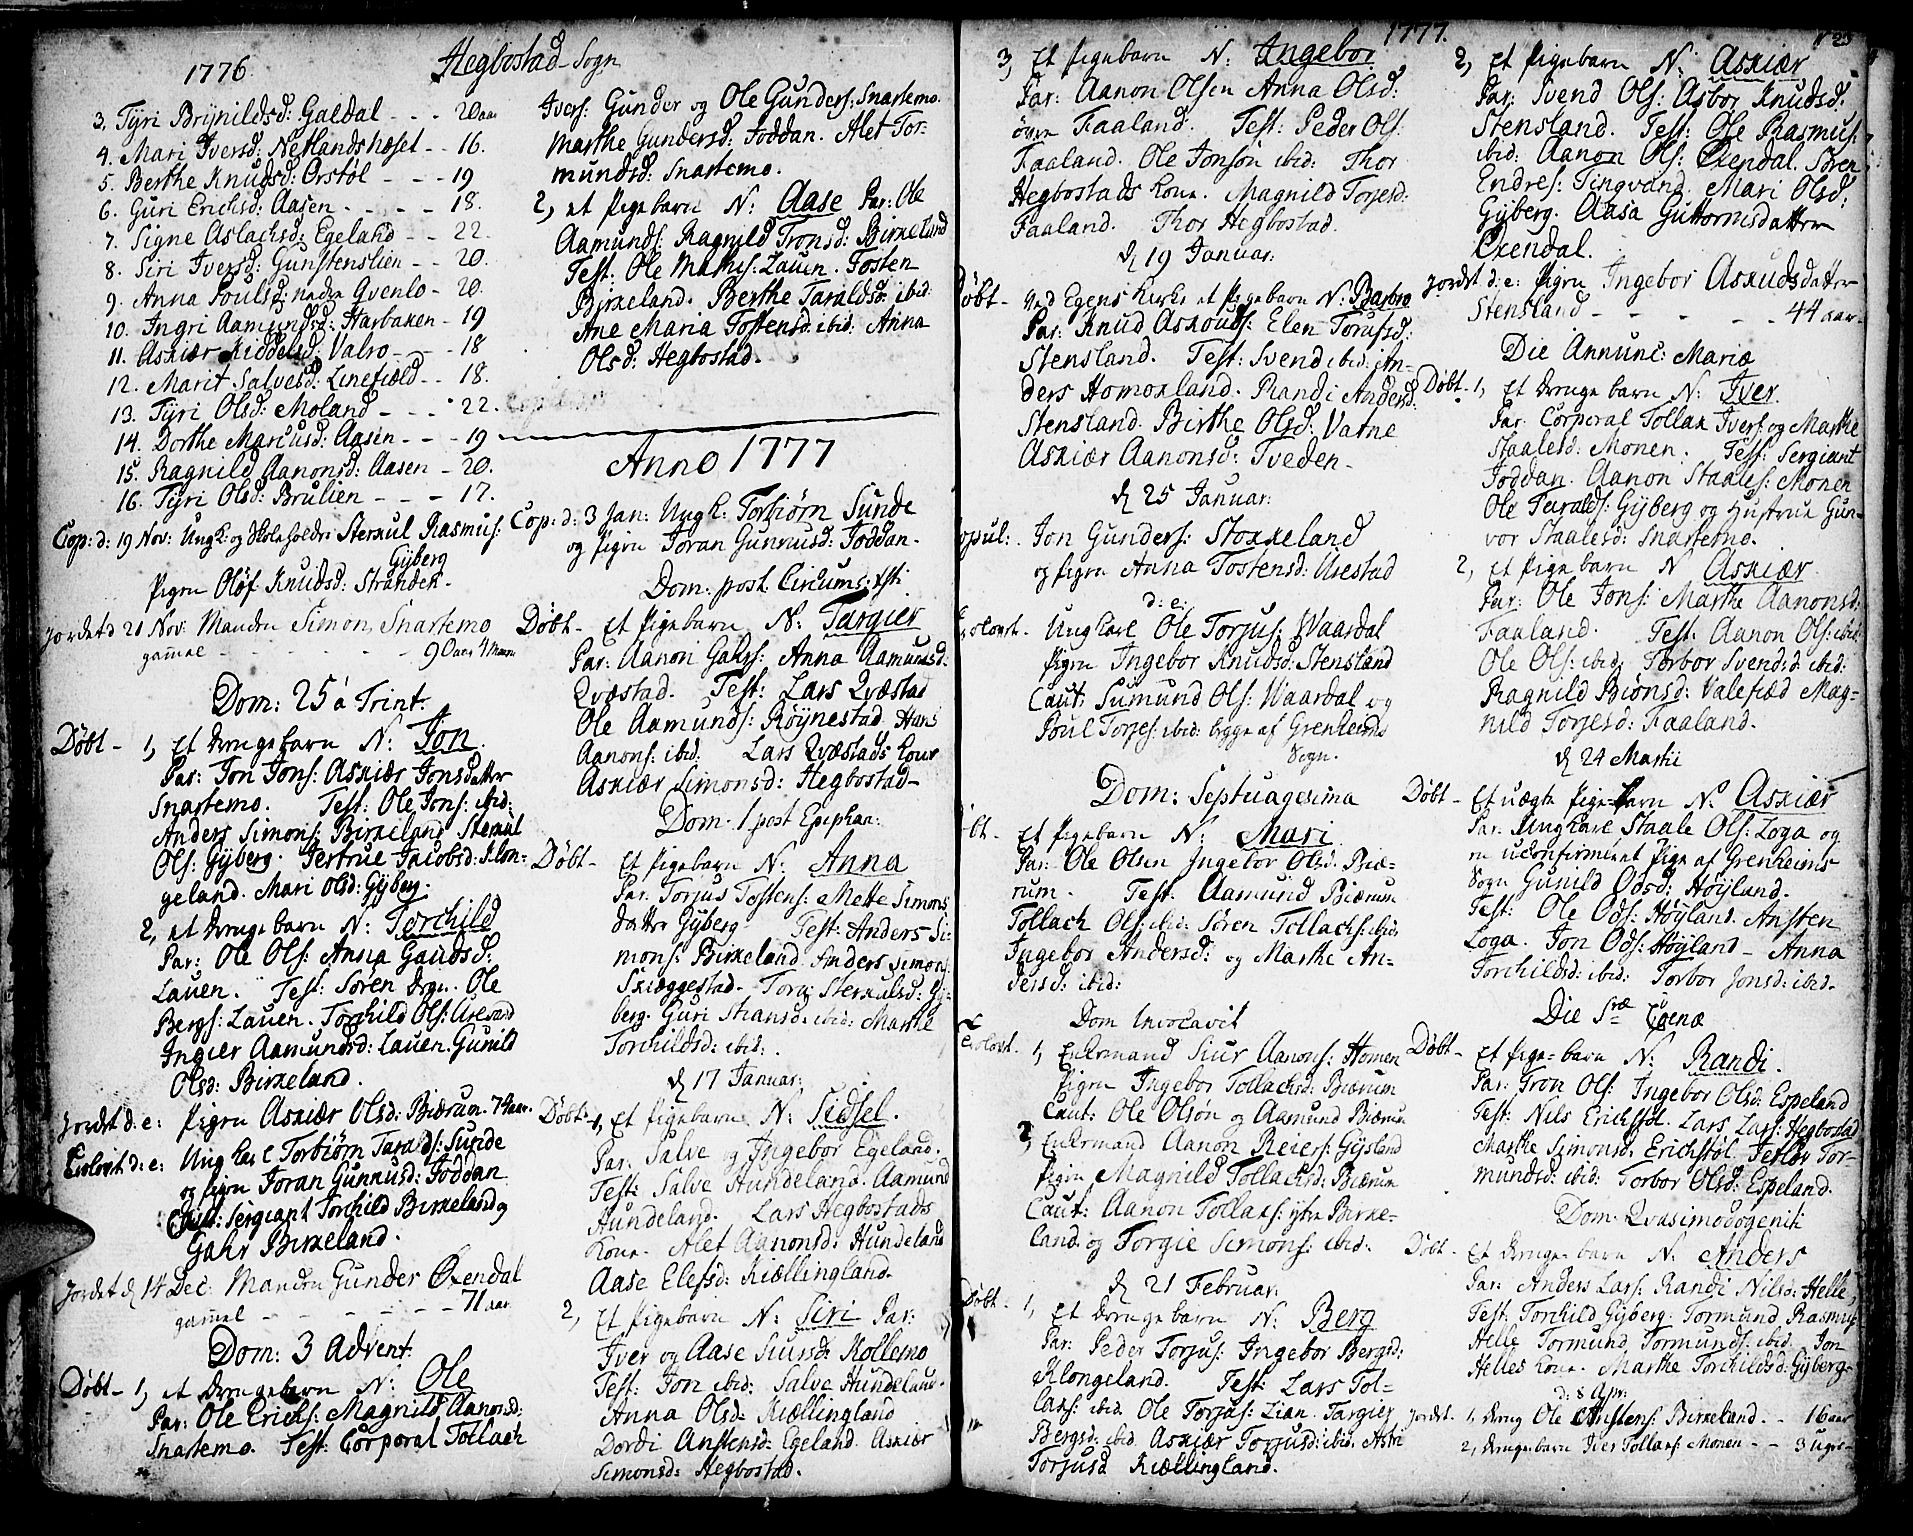 1776.
Hegbostad Sogn
3. Tÿri Brÿnildsd: Gaedal - - - 20 aar
4. Mari Iversd: Netlandshæset - - 16.
5. Berthe Knudsd: Orstøl - - - 19
6. Guri Erichsd: Aasen - - - - 18.
7. Signe Aslachsd: Egeland - - 22.
8. Siri Iversd: Gunstenslien - - 20.
9. Anna Poulsd: nedre Qvenlo - 20.
10. Ingri Aamundsd: Harbaken - 19
11. Askiær Kiddelsd: Valro - - - 18
12. Marit Salvesd: Linefiæld - - 18.
13. Tÿri Olsd: Moland - - - 22.
14. Dorthe Marcusd: Aasen - - - 19
15. Ragnild Aanonsd: Aasen - 20.
16. Tÿri Olsd: Brulien - - - 17.
Cop: d: 19 Nov: Ungk: og Skoleholder Sterkul Rasmus:
Gÿberg
Pigen Oløf Knudsd: Stranden.
Jordet d 21 Nov: Manden Simon Snartemo
gamel - - - - - 90 aar
Dom: 25 a Trint.
Døbt - 1, Et drengebarn N: Jon.
Par: Jon Jons: Askiær Jonsdatter
Snartemo. Test: Ole Jons: ibid:
Anders Simons: Birkeland Sterkul
Ols: Gÿberg. Jertrue Jacobsd: Klon=
geland. Mari Olsd: Gÿberg.
2, et drengebarn N: Torchild
Par: Ole Ols: Anna Gaudsd:
Lauen. Test: Søren dreng. Ole
Bergs: Lauen. Torchild Ols: Urevand
Ingier Aamundsd: Lauen. Gunild
Olsd: Birkeland.
Jordet d: e: Pigen Askiær Olsd: Biærum. 74 aar.
Trolovet d: e: Ungkarl Torbiørn Taralds: Sunde
og Pigen Joran Gunnusd: Foddan
Caut: Sergiant Torchild Birkeland og
Gahr Birkeland.
Jordet d 14 Dec: Manden Gunder Øxendal
gamel - - - - - - 71 aar
Dom: 3 Advent.
Døbt - 1, et drengebarn N: Ole
Par: Ole Erichs: Magnild Aanonsd:
Snartemo. Test: Corporal Tollach
Ivers: Gunder og Ole Gunders: Snartemo.
Marthe Gundersd: Foddan. Alet Tor:
mundsd: Snartemo.
2, et Pigebarn N: Aase Par: Ole
Aamunds: Ragnild Tronsd: Birkeland
Test: Ole Mathis: Lauen. Tosten
Birkeland. Berthe Taraldsd: ibid:
Ane Maria Tostensd: ibid: Anna
Olsd: Hegbostad.
Anno 1777
Cop: d: 3 Jan: Ungk: Torbiørn Sunde
og Pigen Joran Gunnusd: Foddan.
Dom: post Circumc: Xsti
Døbt - Et Pigebarn N: Targier
Par: Aanon Gahrs: Anna Aamundsd:
Qvæstad. Test: Lars Qvæstad
Ole Aamunds: Røÿnestad. Hans
Aanons: ibid: Lars Qvæstads Kone
Askiær Simonsd: Hegbostad-
Dom: 1 post Epiphan:
Døbt - Et Pigebarn N: Anna
Par: Torjus Tostens: Mette Simons
datter Gÿberg Test: Anders Si=
mons: Birkeland. Anders Simons:
Skieggestad. Torij Sterkulsd: Gÿ=
berg. Guri Steansd: ibid: Marthe
Torchildsd: ibid:.
d 17 Januar:
Døbt - 1, Et Pigebarn N: Sidsel.
Par: Salve og Ingebor Egeland.
Test: Salve Hundeland. Aamund
Hundeland. Lars Hegbostads
Kone. Alet Aanonsd: Hundeland
Aase Elefsd: Kiællingland.
2, Et Pigebarn N: Siri Par:
Iver og Aase Siursd: Kollemo
Test: Jon ibid: Salve Hundeland.
Anna Olsd: Kiællingland
Dordi Anstensd: Egeland. Askiær
Simonsd: Hegbostad.
1777.
3, Et Pigebarn N: Ingebor
Par: Aanon Olsen Anna Olsd:
øvre Faaland. Test: Peder Ols:
Faaland. Ole Jonsøn ibid: Thor
Hegbostads Kone. Magnild Torjesd:
Faaland. Thor Hegbostad.
d 19 Januar:
Døbt - ved Egens Kirke et Pigebarn N: Barbro
Par: Knud Askouds: Elen Torusd:
Stensland. Test: Svend ibid: An=
ders Homokland. Randi Andersd:
Stensland. Birthe Olsd: Vatne
Askiær Aanonsd: Tveden.
d 25 Januar:
opul: Jon Gunders: Stokkeland
og Pigen Anna Tostensd: Urestad
d: e:
rolovet. Ungkarl Ole Torjus: Waardal
Pigen Ingebor Knudsd: Stensland
Caut: Sumund Ols: Waardal og
Poul Torjes: ibid: begge af Grenheims
Sogn.
Dom: Septuagesima
bt - Et Pigebarn N: Mari
Par: Ole Olsen Ingebor Olsd: Biæ=
rum. Test: Aamund Biærum
Tollach Ols: ibid: Søren Tollachs: ibid:
Ingebor Andersd: og Marthe An=
dersd: ibid:
Dom Invocavit
rolovt. 1, Enkemand Siur Aanons: Homen
Pigen Ingebor Tollachsd: Biærum
Caut: Ole Olsøn og Aamund Biærum
2, Enkemand Aanon Reiers: Gÿsland
Pigen Magnild Tollachsd: Biærum
Caut: Aanon Tollaks: ÿtre Birke=
land og Torgie Simons: ibid:
d 21 Februar.
Døbt - 1, Et drengebarn N: Berg
Par: Peder Torjus: Ingebor Bergsd:
Klongeland. Test: Lars Tol=
laks: ibid. Ole Torjus: Lian. Targier
Bergsd: ibid. Askiær Torjusd: ibid. Astri
Torjusd Kiællingland.
2, Et Pigebarn N: Askiær
Par: Svend Ols: Asbor Knudsd:
Stensland. Test: Ole Rasmus:
ibid: Aanon Ols: Øxendal. Søren
Endres: Tingvand. Mari Olsd:
Gÿberg. Aasa Guttormsdatter
Øxendal.
Jordet d: e: Pigen Ingebor Askudsdatter
Stensland - - - - - 44 aar.
Die Annunc: Mariæ
Døbt. 1, Et drengebarn N: Iver.
Par: Corporal Tollak Ivers: og Marthe
Staalesd: Monen. Test: Sergiant
Foddan. Aanon Staales: Monen
Ole Taralds: Gÿberg og Hustrue Gun=
vor Staalesd: Snartemo.
2, et Pigebarn N Askiær
Par: Ole Jons: Marthe Aanonsd:
Faaland. Test: Aanon Ols: ibid:
Ole Ols: ibid: Torbor Svendsd: ibid:
Ragnild Biønsd: Valefiæd Mag=
nild Torjesd: Faaland.
d 24 Martii
Døbt - Et uægte Pigebarn N: Askiær
Par: Ungkarl Staale Ols: Loga og
en uconfirmeret Pige af Grenheims
Sogn Gunild Odsd: Høÿland.
Test: Ole Ods: Høÿland. Ansten
Loga. Jon Ods: Høÿland - Anna
Torchildsd: ibid: Torbor Jonsd: ibid.
Die Sræ Cœnæ
Døbt - Et Pige=barn N: Randi.
Par: Tron Ols: Ingebor Olsd: Espeland
Test: Nils Erichstøl. Lars Lars: Hegbostad
Marthe Simonsd: Erichstøl. Jerløv Tor=
mundsd: ibid: Torbor Olsd: Espeland.
Dom. Qvasimodogeniti
Døbt - Et drengebarn N: Anders
Par: Anders Lars: Randi Nilsd: Helle,
Test: Torchild Gÿberg. Tormund Rasmus:
Helle Tormund Tormunds: ibid: Jon
Helles Kone. Marthe Torchildsd: Gÿberg.
d: 8 Apr:
Jordet. 1, dreng Ole Anstens: Birkeland. - - 16 aar
2, drengebarn Iver Tollaks: Monen - - 3 uger-